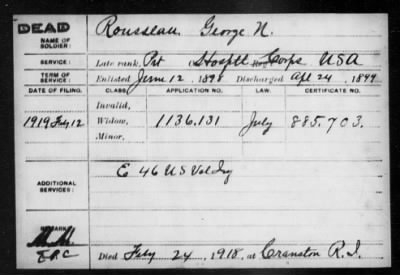 DEAD
NAME OF SOLDIER: Rousseau George N.
SERVICE: Late rank, Pvt Hosptl Corps USA
TERM OF SERVICE: Enlisted June 12, 1898 Discharged Apl 24, 1899
DATE OF FILING. CLASS. APPLICATION NO. LAW. CERTIFICATE NO.
Invalid,
1919 Feby 12 Widow, 1136.131 July 885.703.
Minor,
ADDITIONAL SERVICES: E 46 US Vol Inf
REMARKS:
Died Feby 24, 1918, at Cranston R.I.